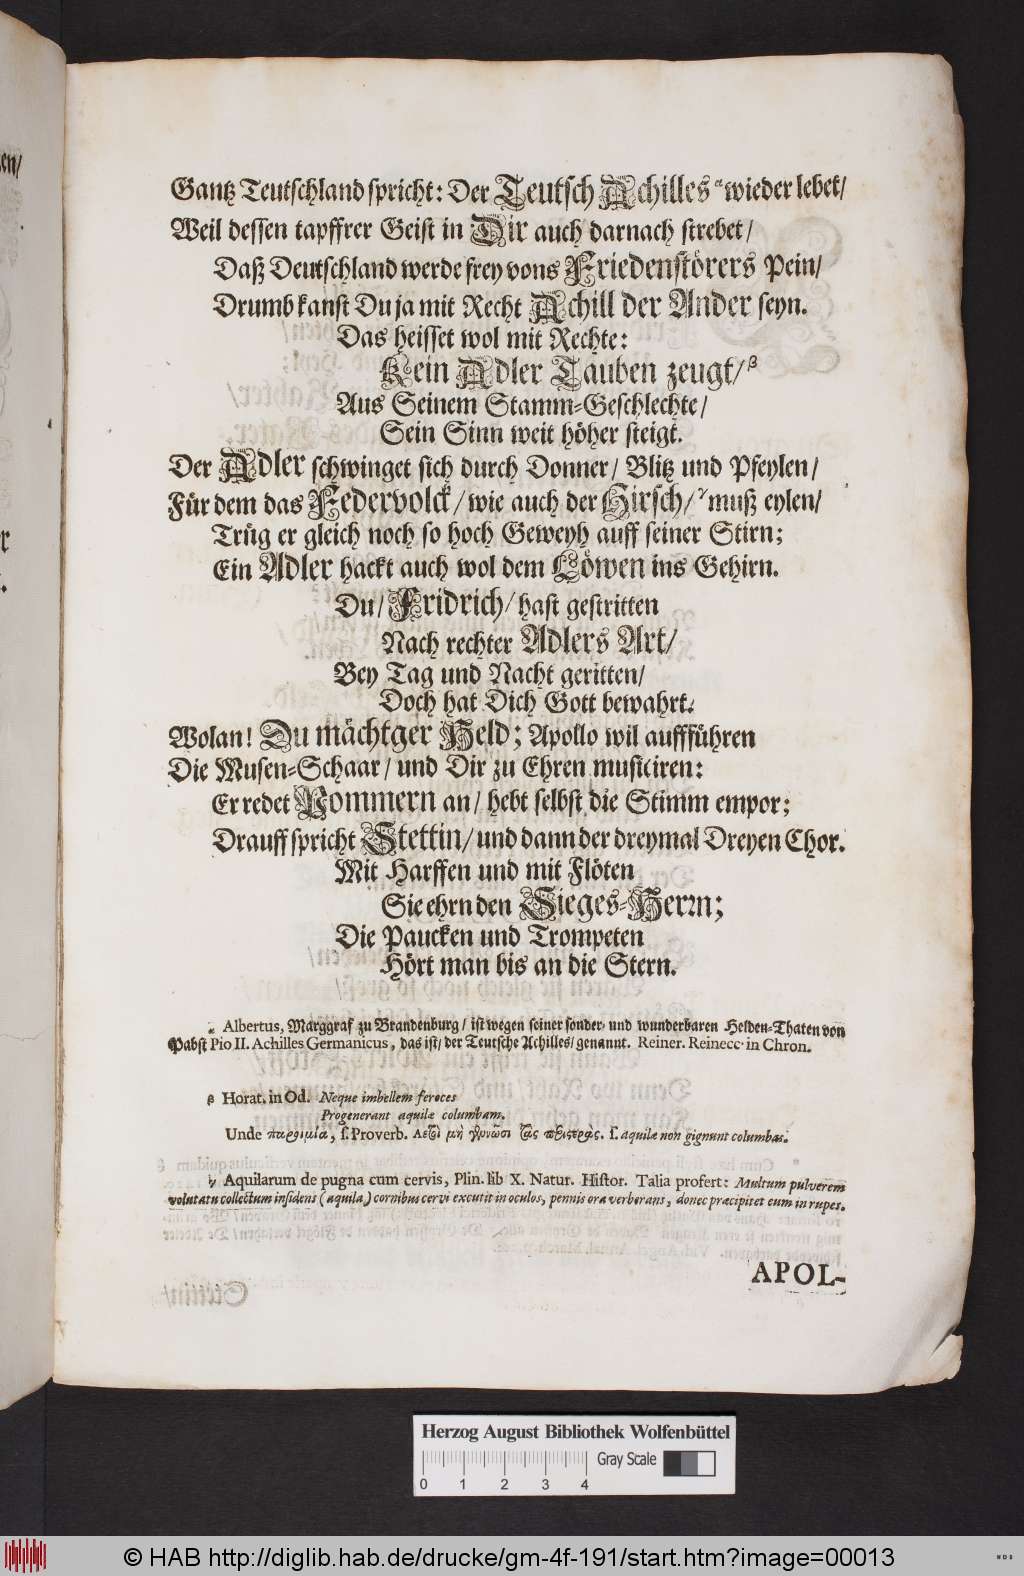 Gantz Teutschland spricht: Der Teutsch Achilles α wieder lebet/
Weil dessen tapffrer Geist in Dir auch darnach strebet/
Daß Deutschland werde frey vons Friedenstörers Pein/
Drumb kanst Du ja mit Recht Achill der Ander seyn.
Das heisset wol mit Rechte:
Kein Adler Tauben zeugt/ β
Aus Seinem Stamm-Geschlechte/
Sein Sinn weit höher steigt.
Der Adler schwinget sich durch Donner/ Blitz und Pfeylen/
Für dem das Federvolck/ wie auch der Hirsch/ γ muß eylen/
Trüg er gleich noch so hoch Geweyh auff seiner Stirn;
Ein Adler hackt auch wol dem Löwen ins Gehirn.
Du/ Fridrich/ hast gestritten
Nach rechter Adlers Art/
Bey Tag und Nacht geritten/
Doch hat Dich Gott bewahrt.
Wolan! Du mächtger Held; Apollo wil auffführen
Die Musen-Schaar/ und Dir zu Ehren musiciren:
Er redet Pommern an/ hebt selbst die Stimm empor;
Drauff spricht Stettin/ und dann der dreymal Dreyen Chor.
Mit Harffen und mit Flöten
Sie ehrn den Sieges-Herrn;
Die Paucken und Trompeten
Hört man bis an die Stern.
α Albertus, Marggraf zu Brandenburg/ ist wegen seiner sonder- und wunderbaren Helden-Thaten von
Pabst Pio II. Achilles Germanicus, das ist/ der Teutsche Achilles/ genannt. Reiner. Reinecc. in Chron.
β Horat. in Od. Neque imbellem feroces
Progenerant aquilæ columbam.
Unde παροιμία, s. Proverb. Ἀετοὶ μὴ γεννῶσι τὰς περιστεράς. s. aquilæ non gignunt columbas.
γ Aquilarum de pugna cum cervis, Plin. lib X. Natur. Histor. Talia profert: Multum pulverem
volutatu collectum insidens (aquila) cornibus cervi excutit in oculos, pennis ora verberans, donec præcipitet eum in rupes.
APOL-
Herzog August Bibliothek Wolfenbüttel
Gray Scale
0 1 2 3 4
© HAB http://diglib.hab.de/drucke/gm-4f-191/start.htm?image=00013